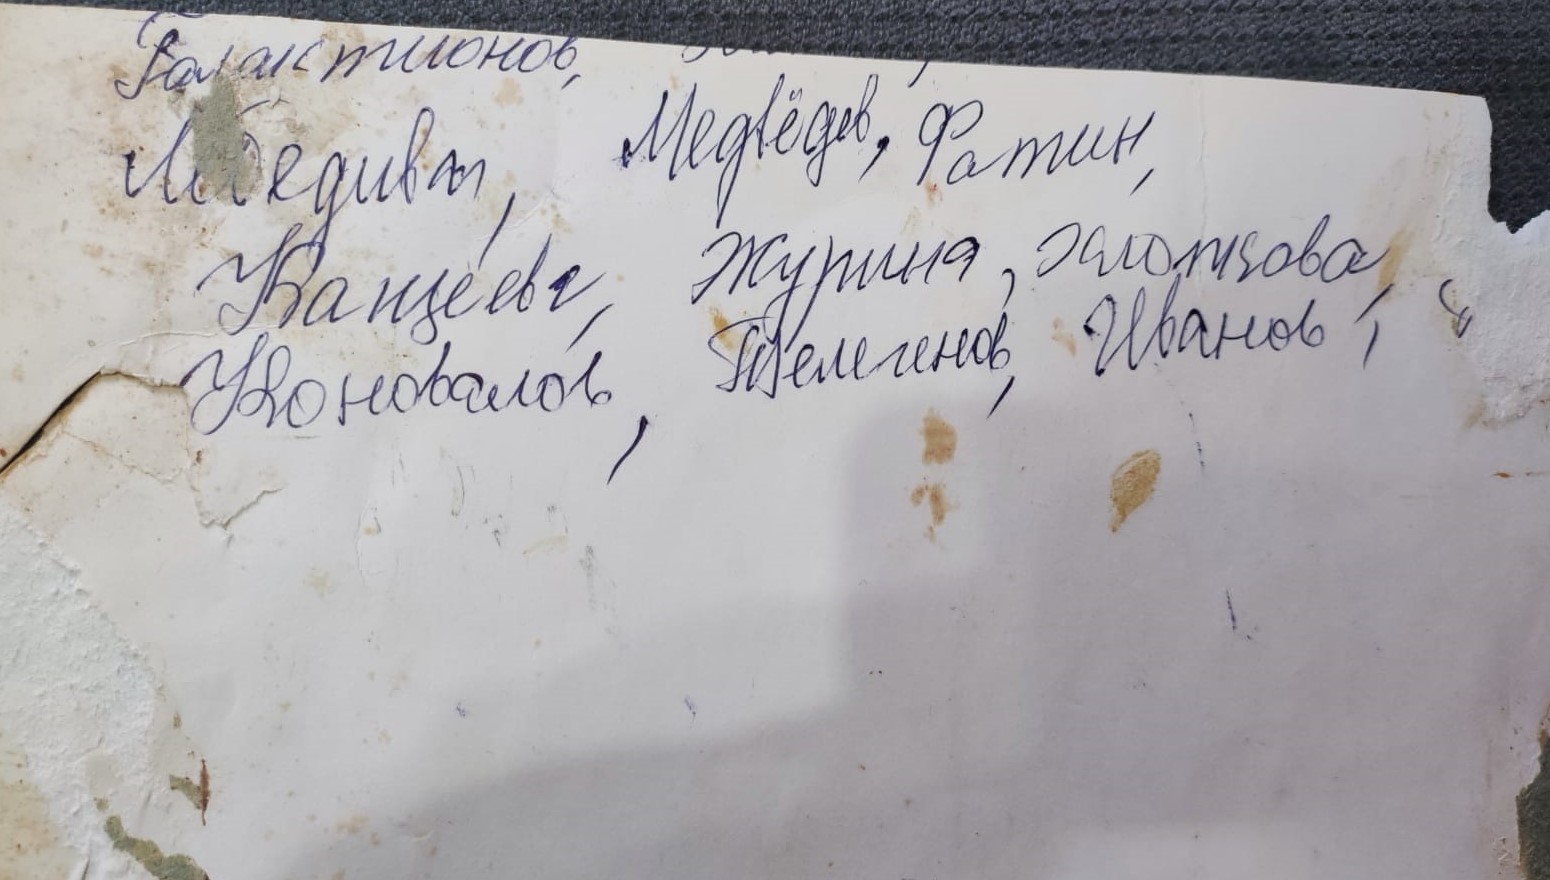 Галактионов,
Медведев, Фатин,
Канцеева, Журина, Клопкова,
Коновалов, Телегенов, Иванов,